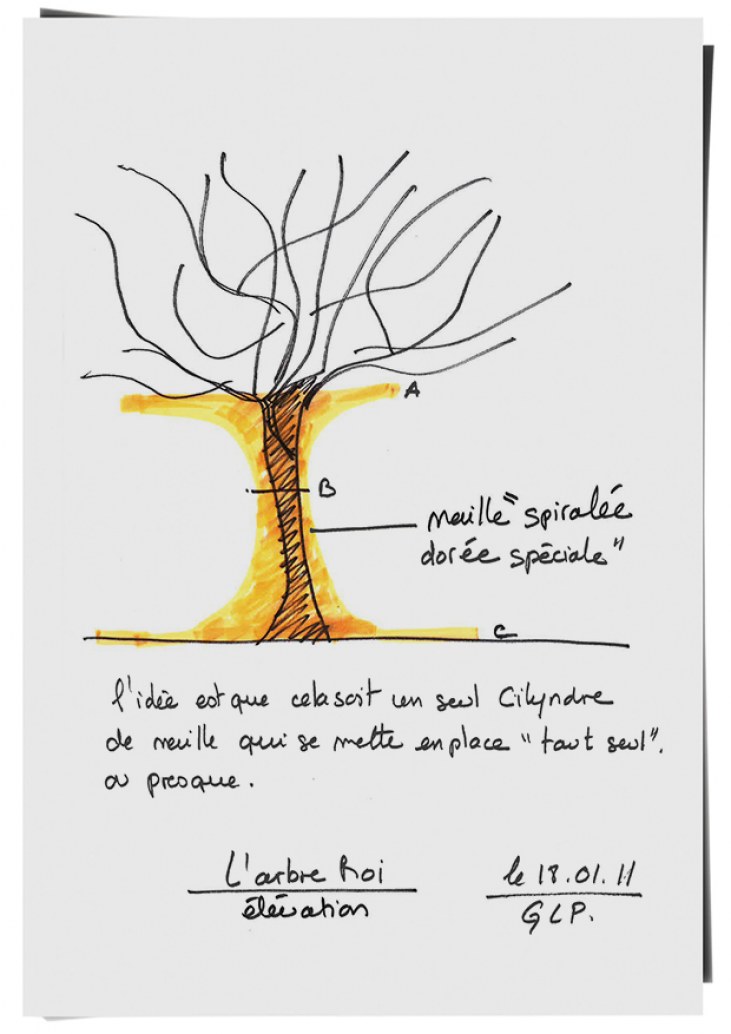 A
B
maille "spiralée
dorée spéciale"
C
l'idée est que cela soit un seul Cilyndre
de maille qui se mette en place "tout seul".
ou presque.
L'arbre Roi
élévation
le 18.01.11
GLP.